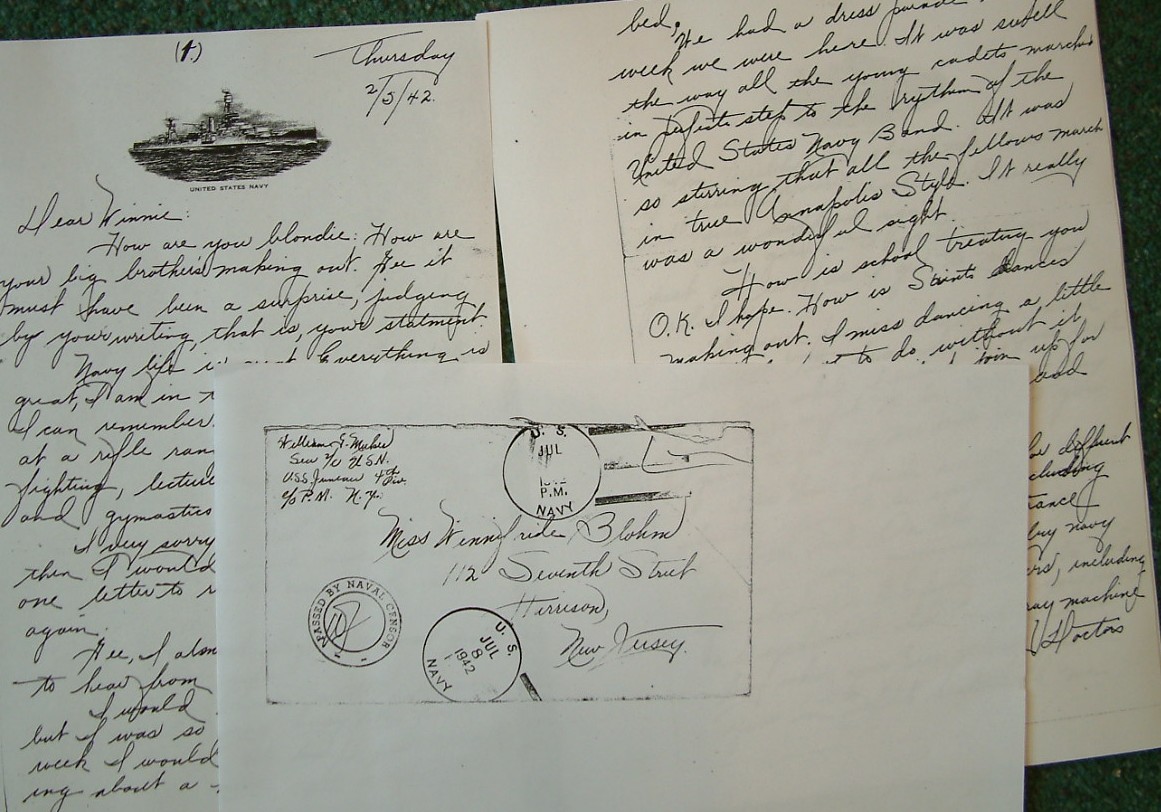 (1.)
Thursday
2/5/42.
UNITED STATES NAVY
Dear Winnie:
How are you blondie: How are
your big brothers making out. Gee it
must have been a surprise, judging
by your writing, that is, your statment.
Navy life is Everything is
great, I am in
I can remember.
at a rifle ran
fighting, lecture
and gymastics
I very sorry
then I would
one letter to
again.
Gee, I alm
to hear from
I would
but I was so
week I would
ing about a
bed.
We had a dress parade
week we were here. It was swell
the way all the young cadets marched
in perfect step to the rythem of the
United States Navy Band. It was
so stirring that all the fellows march
in true Annapolis Style. It really
was a wonderful sight.
How is school treating you
O.K. I hope. How is Saints dances
making out. I miss dancing a little
to do without it,
join up for
and
different
cluding
navy
including
machine
Doctors
William
Sea 2/c U.S.N.
U.S.S. Juneau 4th Div.
c/o P.M. N.Y.
U.S.
JUL
P.M.
NAVY
Miss Winnifride Blohm
112 Seventh Street
Harrison,
New Jersey.
PASSED BY NAVAL CENSOR
U.S.
JUL
8
1942
NAVY